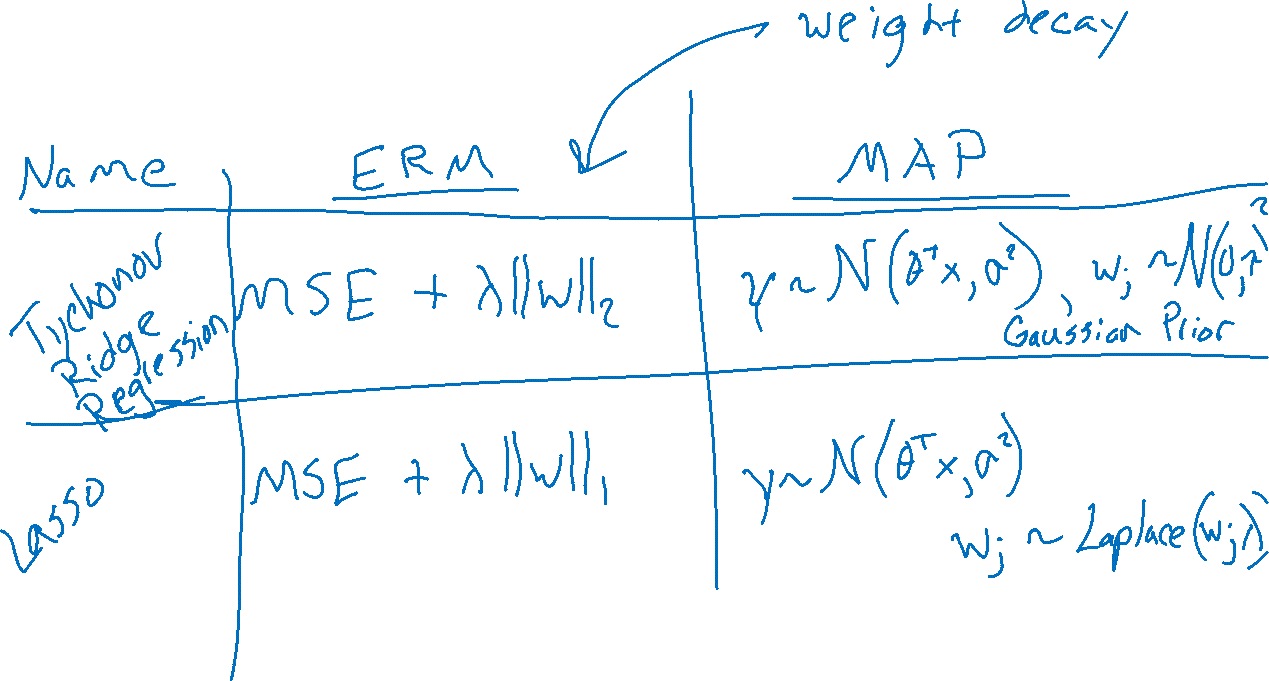 weight decay
Name ERM MAP
Tychonov
Ridge
Regression
MSE + λ||w||₂
y ~ N(θᵀx, σ²), wⱼ ~ N(0, λ)²
Gaussian Prior
Lasso
MSE + λ||w||₁
y ~ N(θᵀx, σ²)
wⱼ ~ Laplace(wⱼ λ)